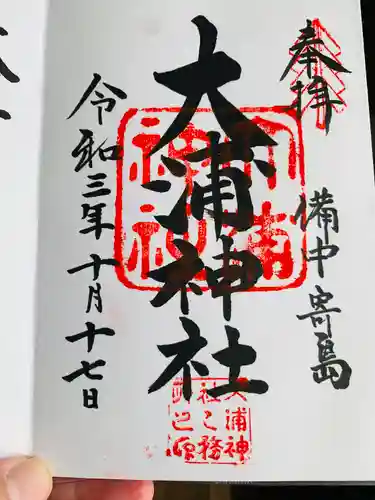 奉拝
備中寄島
大浦神社
令和三年十月十七日
大浦神社